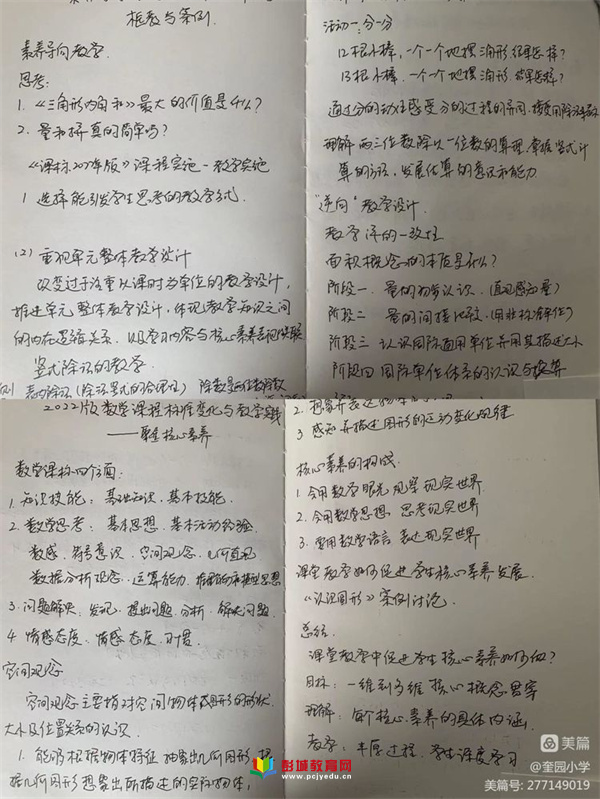 框教与案例
素养导向教学
思考:
1. 《三角形内角和》最大的价值是什么?
2. 量和拼真的简单吗?
《课标2022年版》课程实施-教学实施
1 选择能引发学生思考的教学方式.
(2) 重视单元整体教学设计
改变过于注重以课时为单位的教学设计,
推进单元整体教学设计,体现教学知识之间
的内在逻辑关系,以及学习内容与核心素养表现的关联
竖式除法的教学.
例 表内除法(除法竖式的合理性) 除数是一位数除数
活动一:分一分
12根小棒,一个一个地摆三角形,结果怎样?
13根小棒,一个一个地摆三角形,结果怎样?
通过分的动作感受分的过程的异同,
理解两三位数除以一位数的算理,掌握竖式计
算的方法,发展估算的意识和能力
"逆向"教学设计.
教学评的一致性
面积概念的本质是什么?
阶段一. 量的初步认识.(直观感知量)
阶段二 量的间接比较.(用非标准单位)
阶段三 认识国际通用单位并用其描述大小
阶段四 国际单位体系的认识与换算
2022版数学课程标准变化与教学实践
——聚焦核心素养
数学课标四个方面:
1. 知识技能: 基础知识、基本技能.
2. 数学思考: 基本思想、基本活动经验
数感、符号意识、空间观念、几何直观
数据分析观念、运算能力、推理能力和模型思想
3. 问题解决: 发现、提出问题、分析、解决问题.
4 情感态度: 情感、态度、习惯.
空间观念
空间观念主要指对空间物体或图形的形状
大小及位置关系的认识
1. 能够根据物体特征抽象出几何图形,根
据几何图形想象出所描述的实际物体,
2. 想象并表达物体
3 感知并描述图形的运动变化规律
核心素养的构成
1. 会用数学眼光观察现实世界
2. 会用数学思想 思考现实世界
3. 会用数学语言 表达现实世界
课堂教学如何促进学生核心素养发展.
《认识图形》案例讨论.
总结.
课堂教学中促进学生核心素养如何做?
目标: 一维到多维 核心概念
理解: 每个核心素养的具体内涵.
教学: 丰厚过程. 学生深度学习
彭城教育网
www.pcjyedu.cn
美篇
@奎园小学
美篇号: 277149019